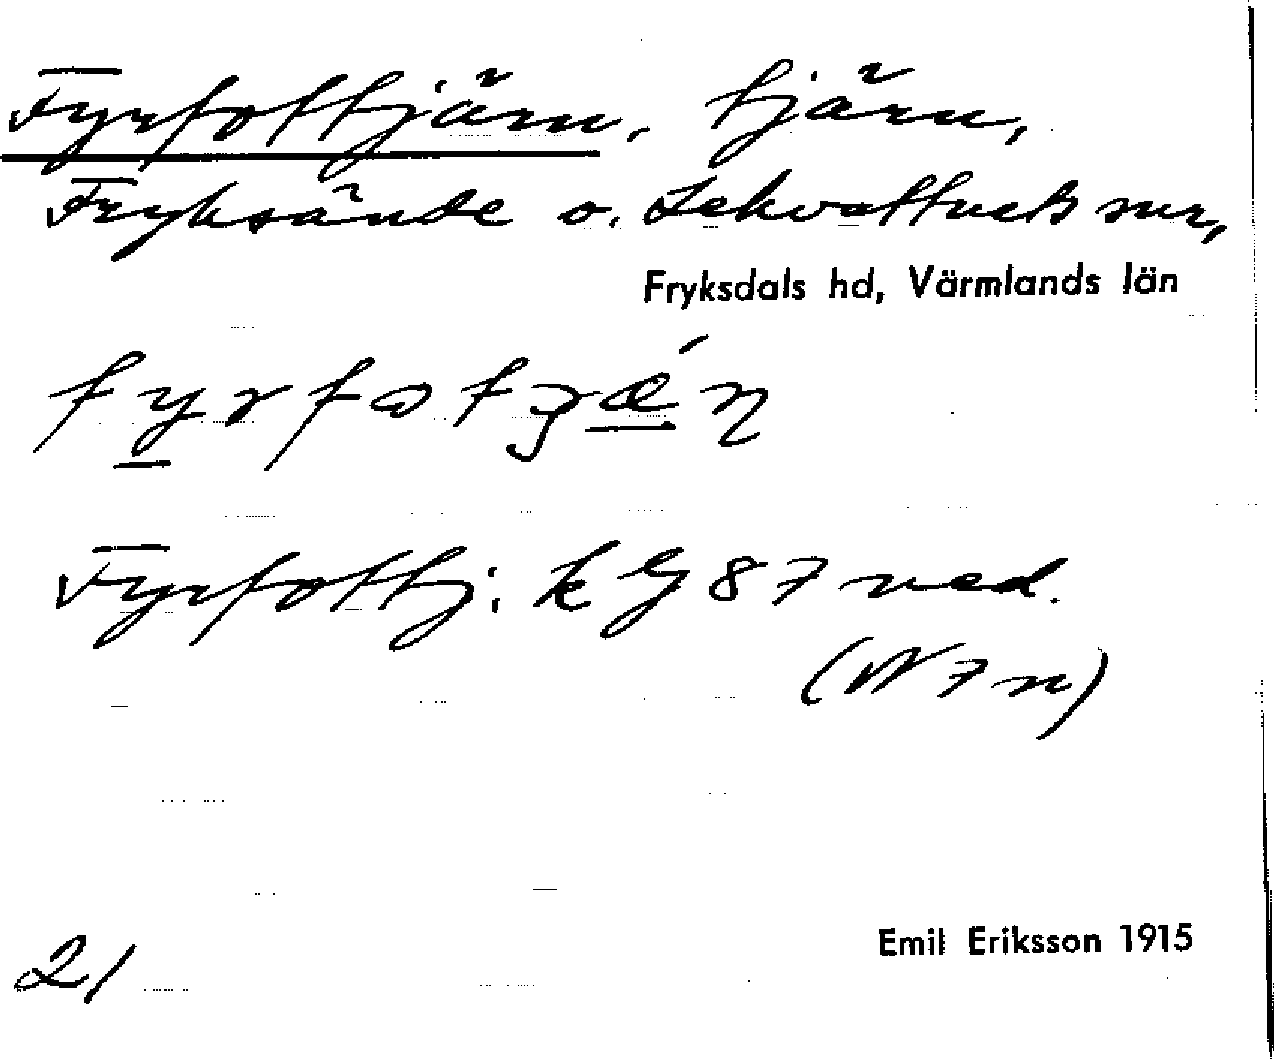 Fyrfottjärn, tjärn,
Fryksände o. Lekvattnets snr,
Fryksdals hd, Värmlands län
fyrfotȝǽn
Fyrfottj: k G 87 ned.
(W 7 n)
Emil Eriksson 1915
21